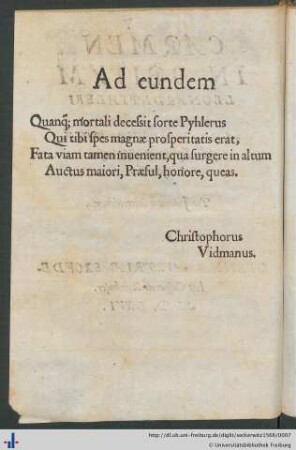 Ad eundem
Quanq́; mortali decessit sorte Pyhlerus
Qui tibi spes magnæ prosperitatis erat,
Fata viam tamen inuenient, qua surgere in altum
Auctus maiori, Præsul, honore, queas.
Christophorus
Vidmanus.
http://dl.ub.uni-freiburg.de/diglit/weiterwitz1566/0007
© Universitätsbibliothek Freiburg